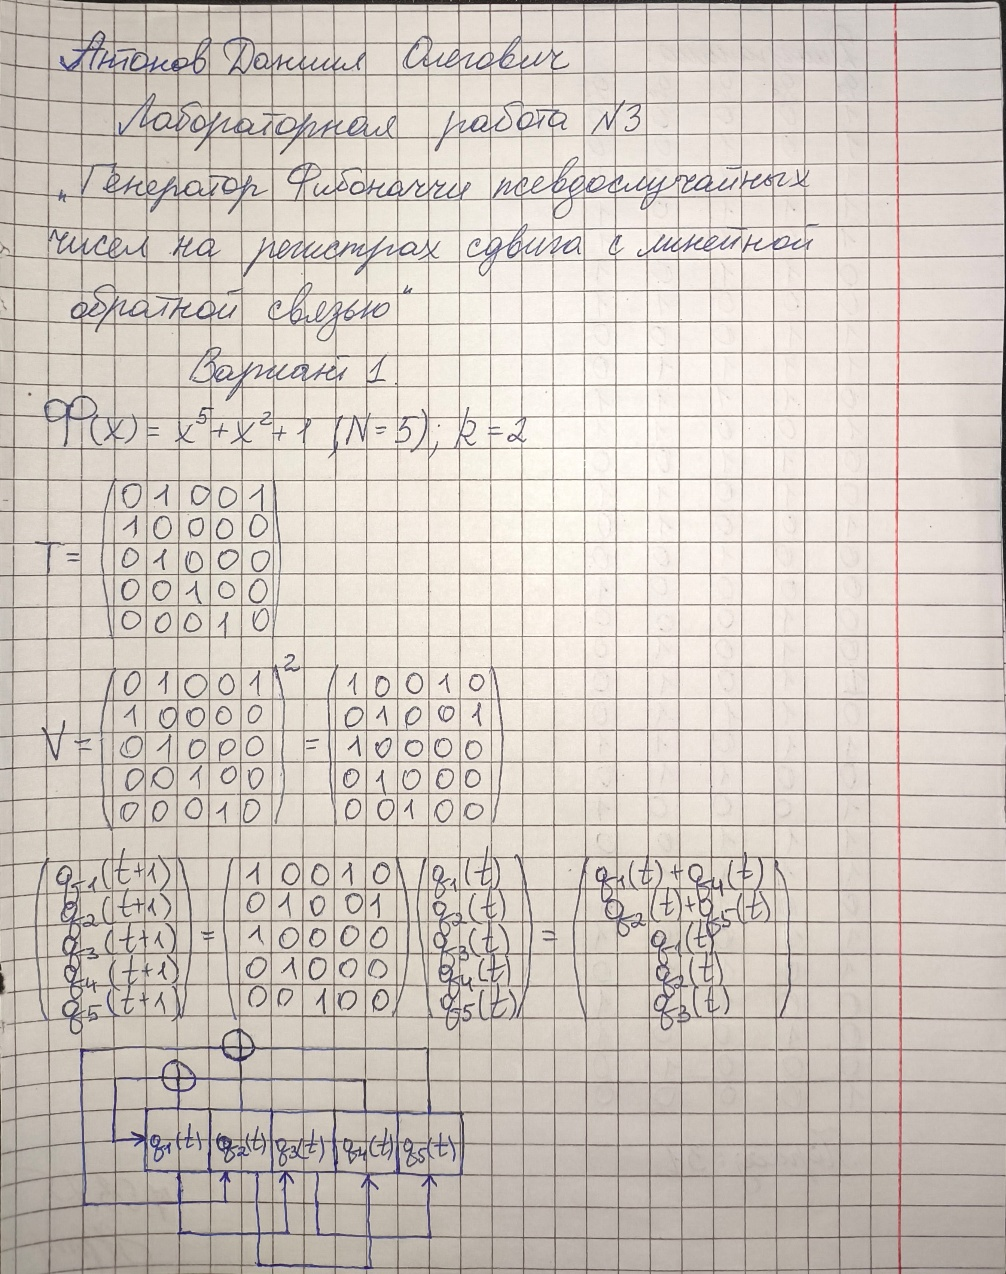 Антонов Даниил Олегович
Лабораторная работа №3
„Генератор Фибоначчи псевдослучайных
чисел на регистрах сдвига с линейной
обратной связью“
Вариант 1.
φ(x) = x⁵+x²+1 (N=5); k=2
0 1 0 0 1
1 0 0 0 0
T= 0 1 0 0 0
0 0 1 0 0
0 0 0 1 0
2
0 1 0 0 1 1 0 0 1 0
1 0 0 0 0 0 1 0 0 1
V= 0 1 0 0 0 = 1 0 0 0 0
0 0 1 0 0 0 1 0 0 0
0 0 0 1 0 0 0 1 0 0
q1(t+1) 1 0 0 1 0 q1(t) q1(t)+q4(t)
q2(t+1) 0 1 0 0 1 q2(t) q2(t)+q5(t)
q3(t+1) = 1 0 0 0 0 q3(t) = q1(t)
q4(t+1) 0 1 0 0 0 q4(t) q2(t)
q5(t+1) 0 0 1 0 0 q5(t) q3(t)
q1(t) q2(t) q3(t) q4(t) q5(t)